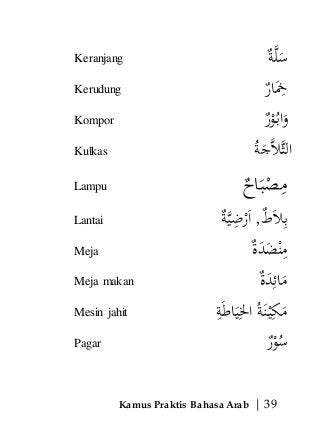 Keranjang سَلَّةٌ
Kerudung خِمَارٌ
Kompor وَابُوْرٌ
Kulkas الثَّلاَّجَةُ
Lampu مِصْبَاحٌ
Lantai بِلاَطٌ , اَرْضِيَّةٌ
Meja مِنْضَدَةٌ
Meja makan مَائِدَةٌ
Mesin jahit مَكِيْنَةُ الْخِيَاطَةِ
Pagar سُوْرٌ
Kamus Praktis Bahasa Arab | 39